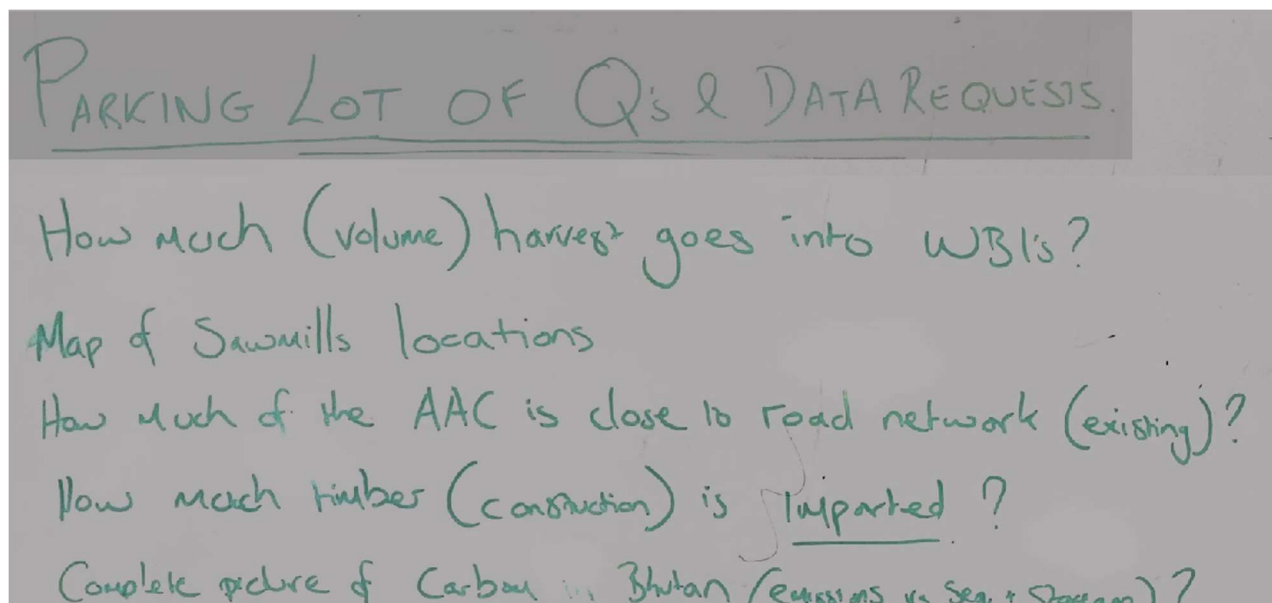 PARKING LOT OF Q's & DATA REQUESTS.
How much (volume) harvest goes into WBI's?
Map of Sawmills locations
How much of the AAC is close to road network (existing)?
How much timber (construction) is Imported ?
Complete picture of Carbon in Bhutan (emissions vs Seq. + Storage)?